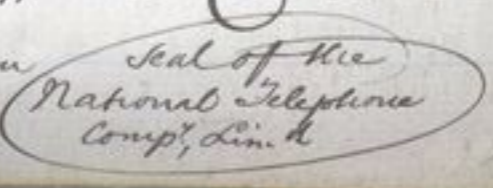 Seal of the
National Telephone
Compy, Lim.d